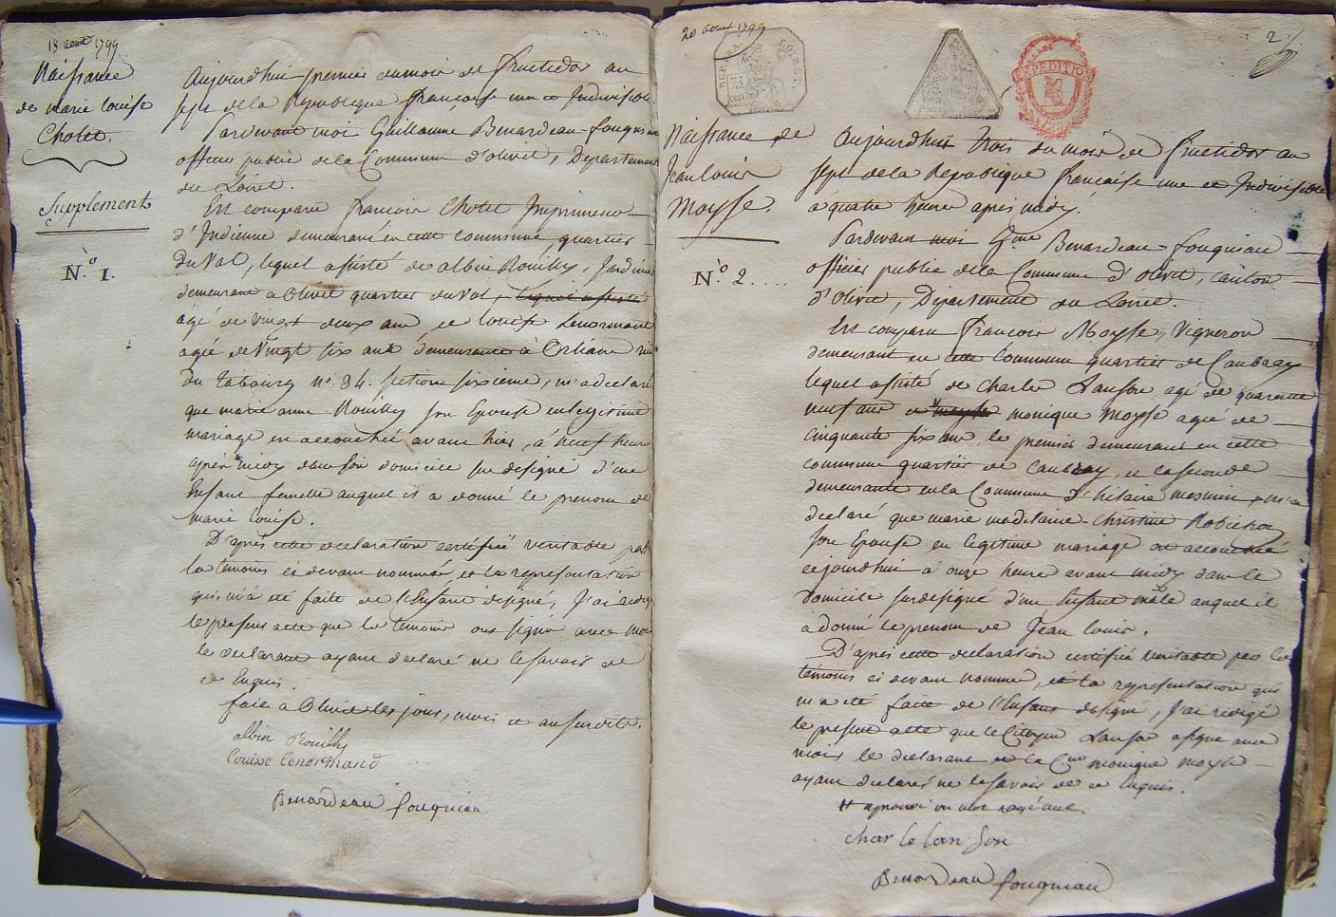 18 aout 1799
Naissance
de marie louise
Cholet.
Supplement
N.º 1.
Aujourdhui premier dumois de fructidor an
sept de la Republique francaise une et Indivisible
Pardevant moi Guillaume Benardeau-fougniau
officier public de la Commune d'olivet, Departement
du Loiret.
Est comparu francois Cholet Imprimeur
d'Indienne demeurant en cette commune, quartier
du Val, lequel assisté de albin Rouilly, Jardinier
demeurant a Olivet quartier du Val,
agé de vingt deux ans, et louise Lenormand
agée de vingt six ans demeurante à Orleans rue
du tabourg nº. 34. section sixieme, m'a declaré
que marie anne Rouilly son Epouse en legitime
mariage en accouchée avant hier, à neuf heures
après midy dans son domicile susdesigné d'une
Enfant femelle auquel il a donné le prenom de
marie louise.
D'après cette declaration certifiée veritable par
les temoins ci devant nommés, et la representation
qui m'a été faite de l'Enfant designé, J'ai redigé
le present acte que les temoins ont signé avec moi
le declarant ayant declaré ne le savoir de
ce Enquis.
fait à Olivet les jour, mois et an susdits.
albin Rouilly
Louise Lenormand
Benardeau fougniau
20 aout 1799
2
EXPEDITION
Naissance de
Jean louis
Moysse.
N.º 2....
Aujourdhui trois du mois de fructidor an
sept de la Republique francaise une et Indivisible
à quatre heures après midy.
Pardevant moi Gme Benardeau-fougniau
officier public de la Commune d'olivet, canton
d'Olivet, Departement du Loiret.
Est comparu francois Moysse, Vigneron
demeurant en cette Commune quartier de Caubray
lequel assisté de Charles Lanson agé de quarante
neuf ans et monique Moysse agée de
cinquante six ans, le premier demeurant en cette
commune quartier de Caubray, et la seconde
demeurante en la Commune d'hilaire mesmin, m'a
declaré que marie madelaine-christine Robichon
son Epouse en legitime mariage est accouchée
cejourdhui à onze heures avant midy dans le
Domicile susdesigné d'un Enfant mâle auquel il
a donné le prenom de Jean louis.
D'après cette declaration certifiée veritable par les
temoins ci devant nommés, et la representation qui
m'a été faite de l'Enfant designé, J'ai redigé
le present acte que le Citoyen Lanson a signé avec
mois le declarant et la Cne monique Moysse
ayant declarés ne le savoir de ce Enquis.
approuvé un mot rayé nul
charle lanson
Benardeau fougniau